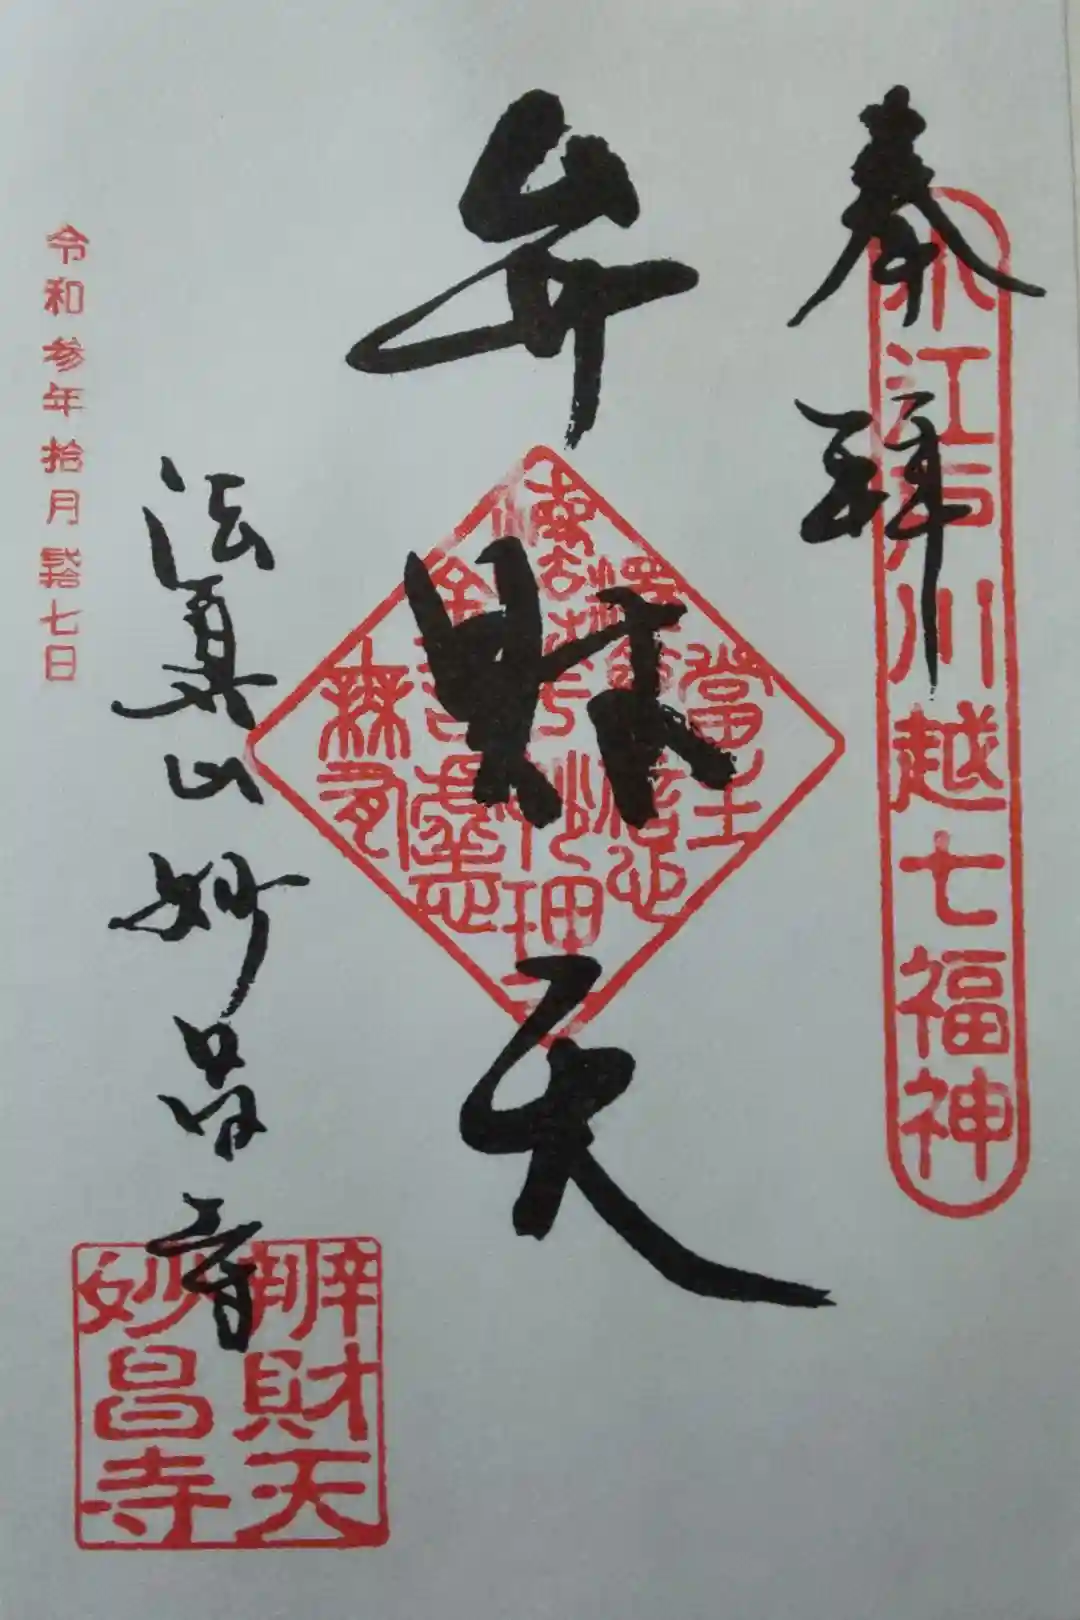 奉拝
小江戸川越七福神
弁財天
當土
法真山妙昌寺
辨財天
妙昌寺
令和参年拾月弐拾七日